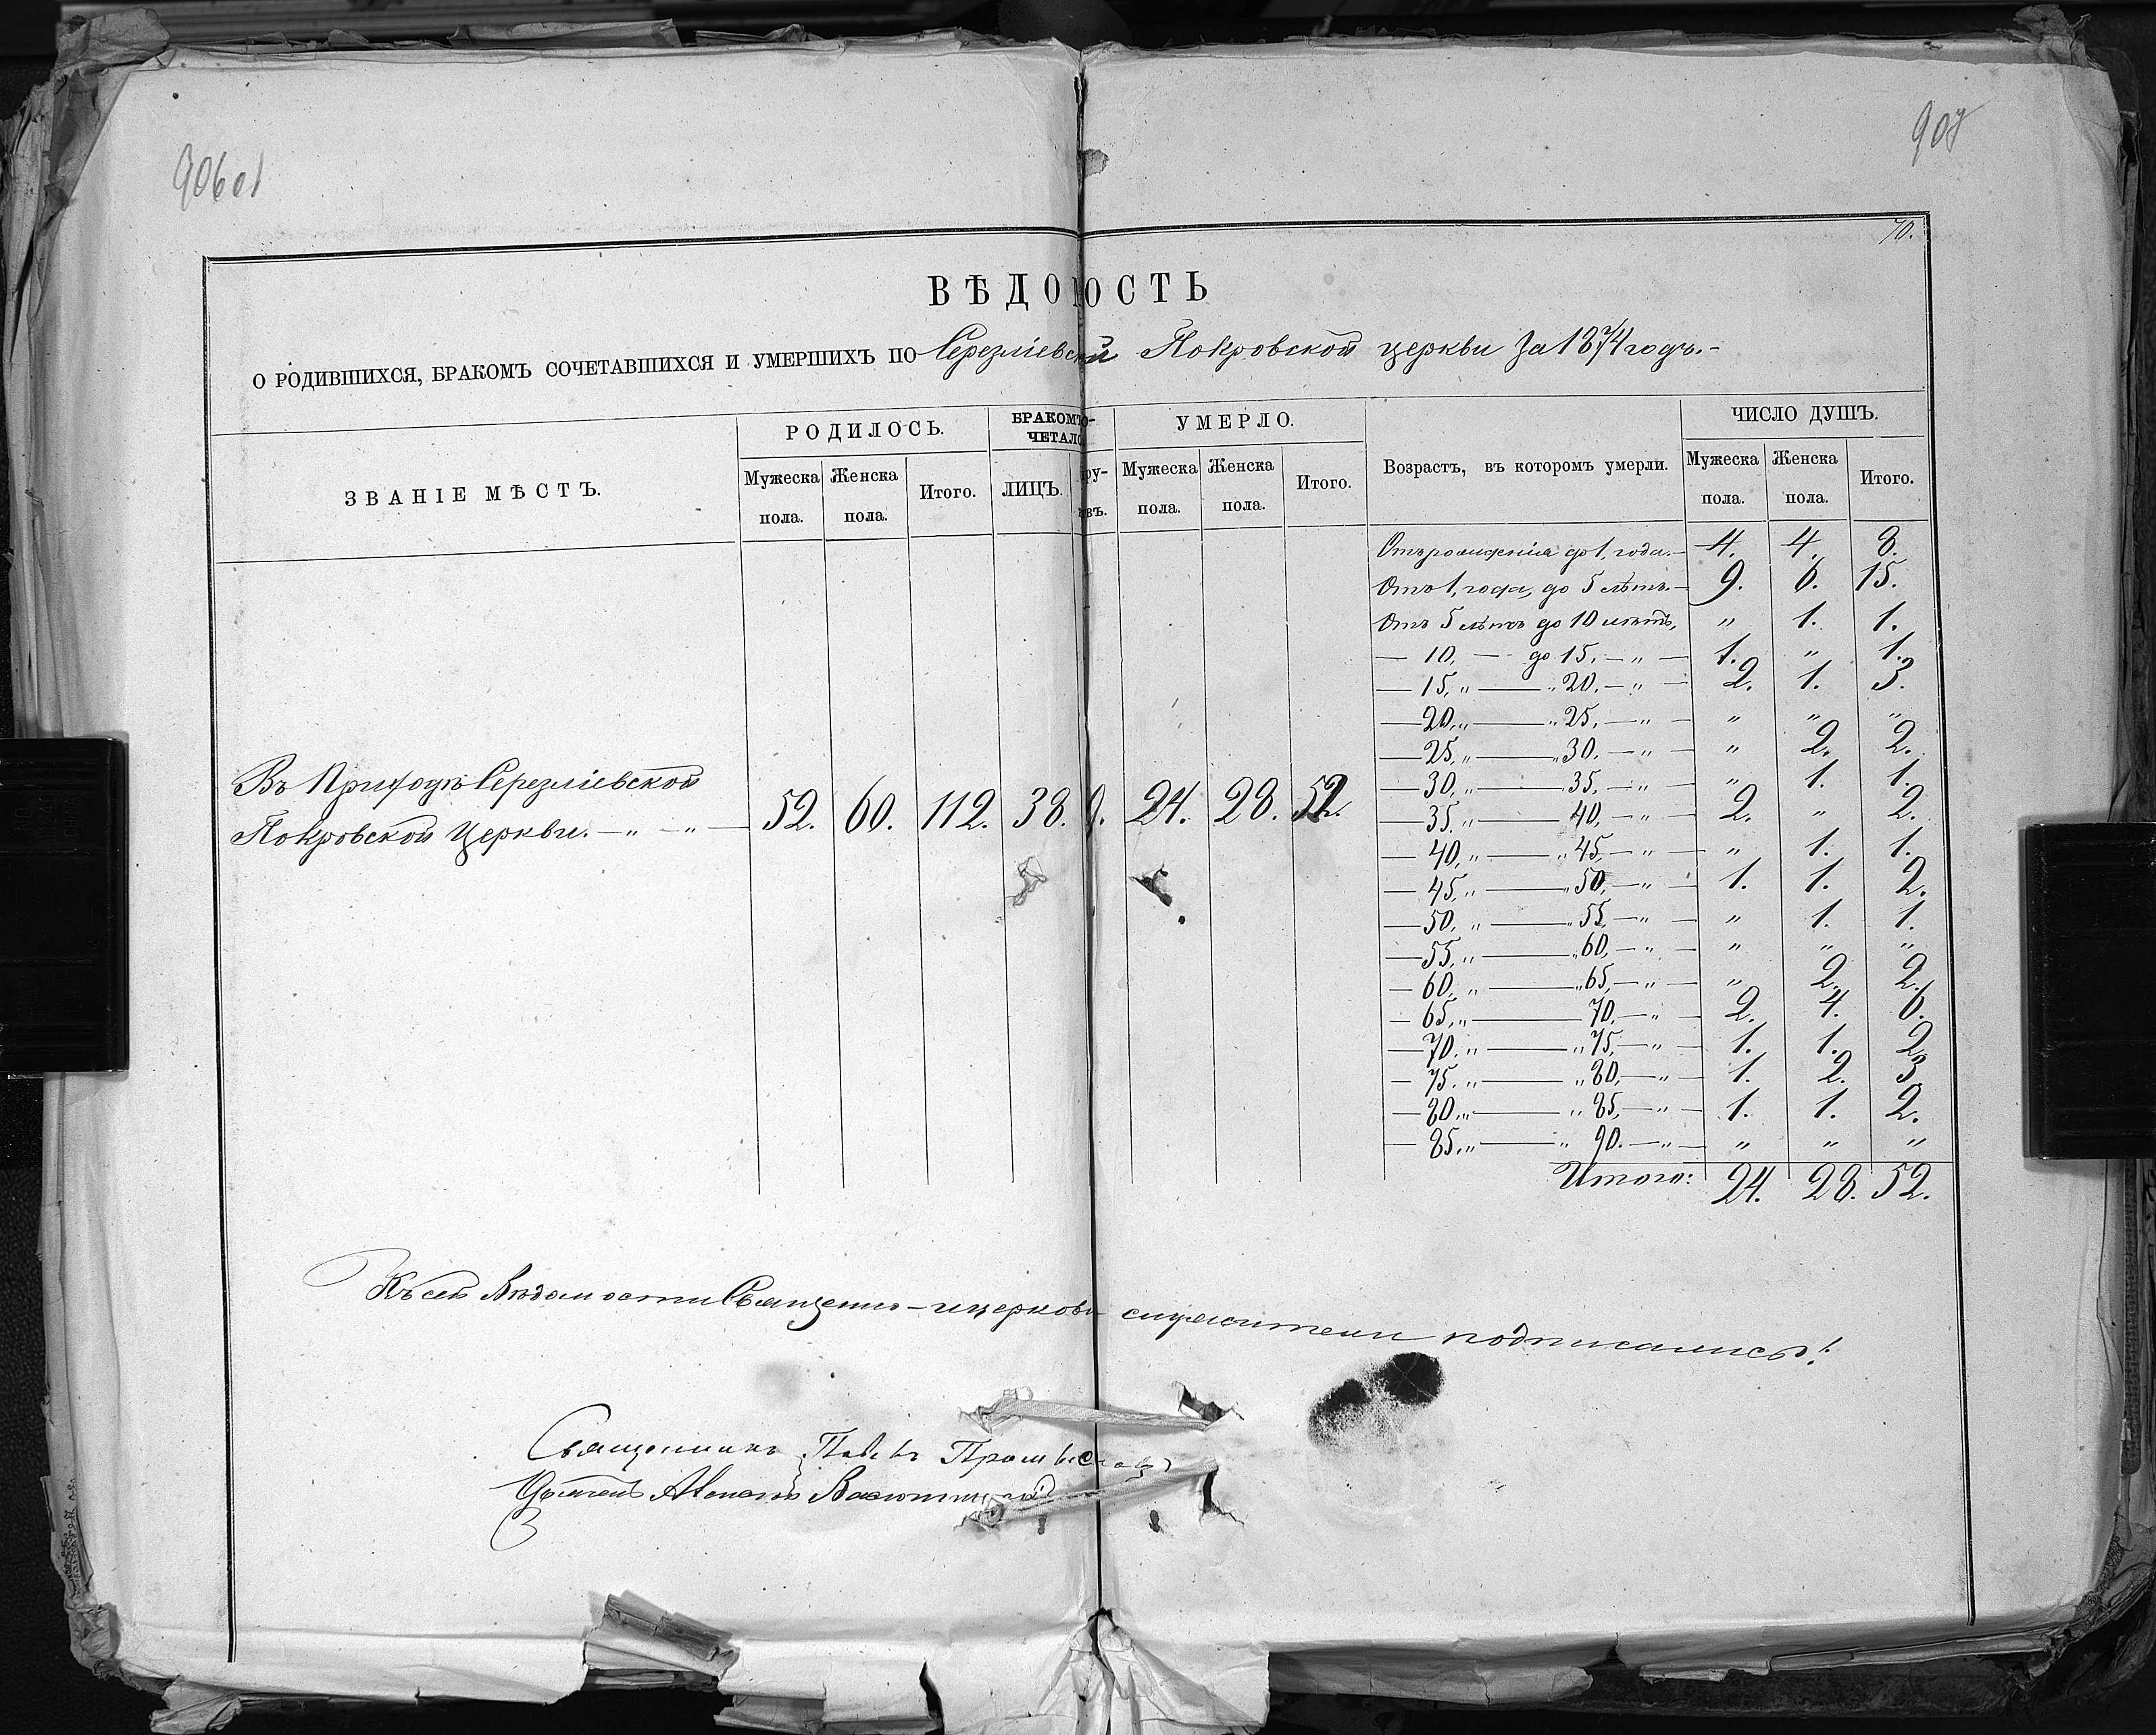 906об
907
70.
ВѢДОМОСТЬ
О РОДИВШИХСЯ, БРАКОМЪ СОЧЕТАВШИХСЯ И УМЕРШИХЪ ПО Серезліевской Покровской церкви за 1874 годъ.-
ЗВАНІЕ МѢСТЪ. РОДИЛОСЬ. БРАКОМЪ СО- УМЕРЛО. Возрастъ, въ которомъ умерли. ЧИСЛО ДУШЪ.
ЧЕТАЛО
Мужеска Женска Итого. ЛИЦЪ. Мужеска Женска Итого. Мужеска Женска Итого.
пола. пола. пола. пола. пола. пола.
Отъ рожденія до 1, года.— 4. 4. 8.
Отъ 1, года, до 5 лѣтъ.— 9. 6. 15.
Отъ 5 лѣтъ до 10 лѣтъ, " 1. 1.
— 10, — до 15, — " — 1. " 1.
— 15, " — " 20. — " — 2. 1. 3.
— 20, " — " 25, — " — " " "
— 25, " — " 30. — " — " 2. 2.
— 30, " — 35, — " — " 1. 1.
— 35. " — 40, — " — 2. " 2.
— 40, " — " 45, — " — " 1. 1.
— 45, " — " 50, — " — 1. 1. 2.
— 50, " — " 55, — " — " 1. 1.
— 55, " — " 60, — " — " " "
— 60, " — " 65, — " — " 2. 2.
— 65, " — 70, — " — 2. 4. 6.
— 70. " — " 75, — " — 1. 1. 2.
— 75. " — " 80, — " — 1. 2. 3.
— 80. " — " 85, — " — 1. 1. 2.
— 85, " — " 90. — " — " " "
Итого: 24. 28. 52.
Въ Приходѣ Серезліевской
Покровской Церкви. — " — " — 52. 60. 112. 38. 24. 28. 52.
Къ сей Вѣдомости Священно-и церковно служители подписались:
Священникъ